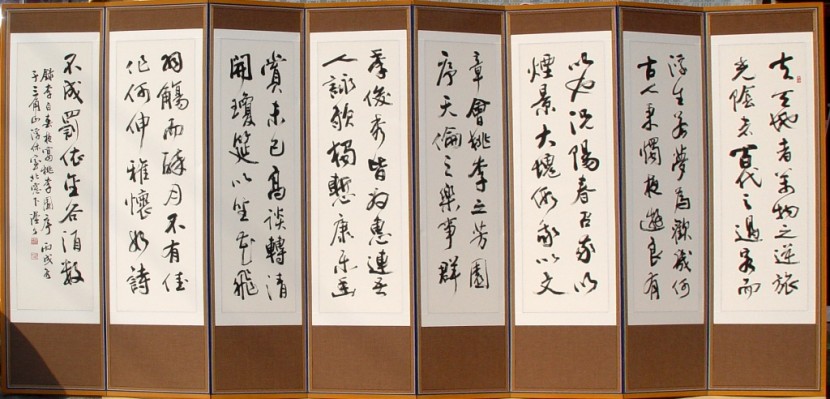 夫天地者萬物之逆旅
光陰者百代之過客而
浮生若夢為歡幾何
古人秉燭夜遊良有
以也況陽春召我以
煙景大塊假我以文
章會桃李之芳園
序天倫之樂事群
季俊秀皆為惠連吾
人詠歌獨慙康樂幽
賞未已高談轉清
開瓊筵以坐花飛
羽觴而醉月不有佳
作何伸雅懷如詩
不成罰依金谷酒數
錄李白春夜宴桃李園序 丙戌
于三角山